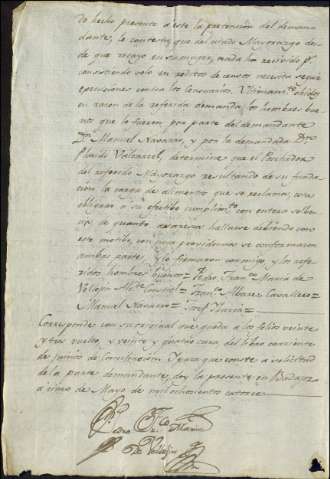 do hecho presente a este la pretension del deman-
dante, le contesto que del citado Mayorazgo des-
de que recayó en su muger, nada ha recivido pr.
consistendo solo en reditos de censos necesita seguir
egecuciones contra los Censuarios. Ultimamte. oidos
en razon a la referida demanda, los hombres bue-
nos que lo fueron por parte del demandante
Dn. Manuel Navarro, y por la demandada Dn.
Placido Valcarcel, determina que el Poehedor
del referido Mayorazgo resultando de su funda-
cion la carga de alimentos que se reclama, este
obligado a su efectibo cumplimto. con entera solben-
cia, de quanto aparezca hallarse debiendo con
este motibo, con cuya providencia se conformaron
ambas partes y lo firmaron conmigo, y los refe-
ridos hombres buenos = Pedro Franco. Maria de
Vallejin = Franco. Albarez Cavallero =
Manuel Navarro = Josef Garcia =
Corresponde con su original que queda a los folios veinte
y tres vuelto, y veinte y quatro cara del libro corriente
de juicios de Conciliacion. Y para que conste a solicitud
de la parte demandante, doy la presente en Badajoz
a cinco de Mayo de mil ochocientos catorce =
Pedro Fco. Maria
De Vallejin